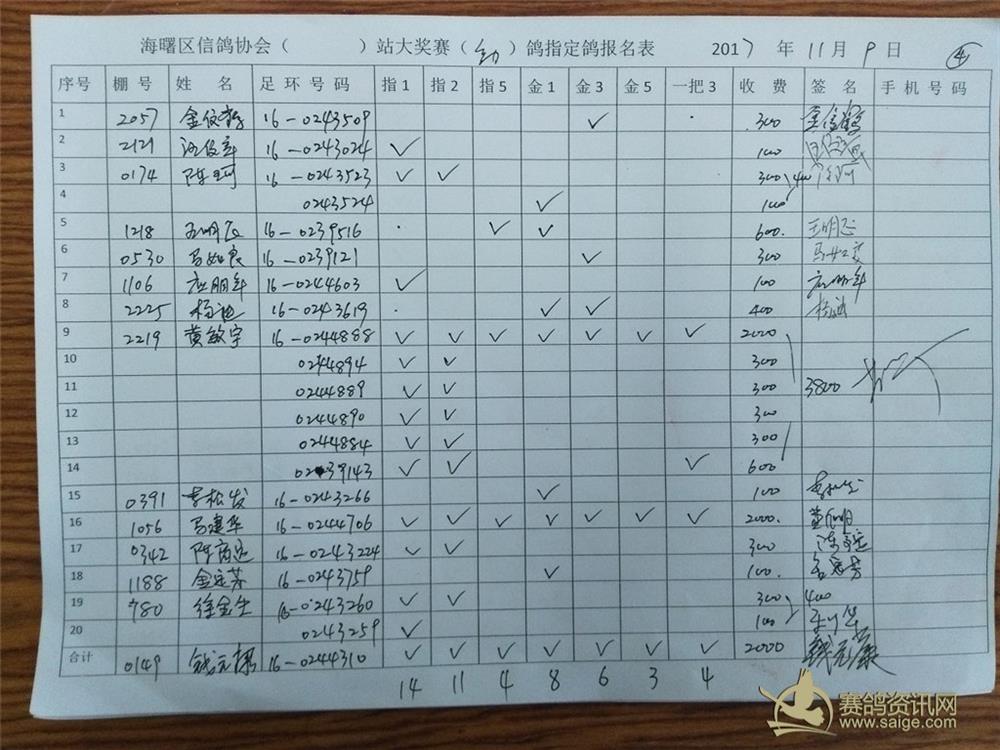 海曙区信鸽协会（ ）站大奖赛（ ）鸽指定鸽报名表 2017 年 11 月 9 日 ④
序号 棚号 姓 名 足 环 号 码 指1 指2 指5 金1 金3 金5 一把3 收 费 签 名 手 机 号 码
1 2057 16-0243509 ✓ 300
2 2121 16-0243024 ✓ 100
3 0174 陈珂 16-0243523 ✓ ✓ 300 400
4 0243524 ✓ 100
5 1218 16-0239516 ✓ ✓ 600.
6 0530 马如良 16-0239121 ✓ 300
7 1106 应朋年 16-0244603 ✓ 100 应朋年
8 2225 16-0243619 ✓ ✓ 400
9 2219 黄敏宇 16-0244888 ✓ ✓ ✓ ✓ ✓ ✓ ✓ 2000
10 0244894 ✓ ✓ 300
11 0244889 ✓ ✓ 300 3800
12 0244890 ✓ ✓ 300
13 0244884 ✓ ✓ 300
14 0239143 ✓ ✓ ✓ 600
15 0391 李松发 16-0243266 ✓ 100
16 1056 马建华 16-0244706 ✓ ✓ ✓ ✓ ✓ ✓ ✓ 2000.
17 0342 16-0243224 ✓ ✓ 300
18 1188 金定芳 16-0243759 ✓ 100. 金定芳
19 780 徐金生 16-0243260 ✓ ✓ 300 400
20 0243259 ✓ 100
合计 0149 16-0244310 ✓ ✓ ✓ ✓ ✓ ✓ ✓ 2000
14 11 4 8 6 3 4
赛鸽资讯网
www.saige.com